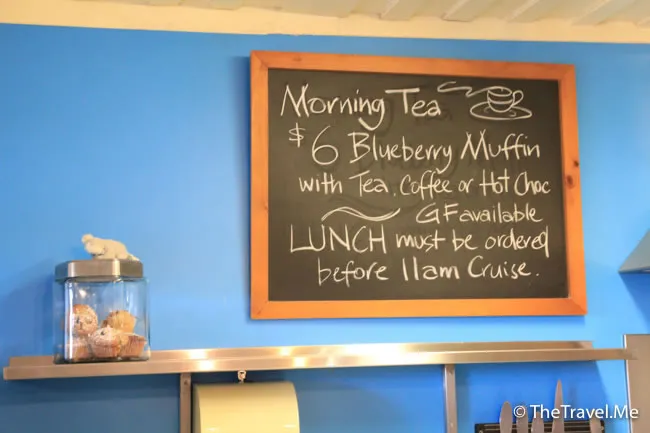 Morning Tea
$6 Blueberry Muffin
with Tea. Coffee or Hot Choc
GF available
LUNCH must be ordered
before 11am Cruise.
© TheTravel.Me